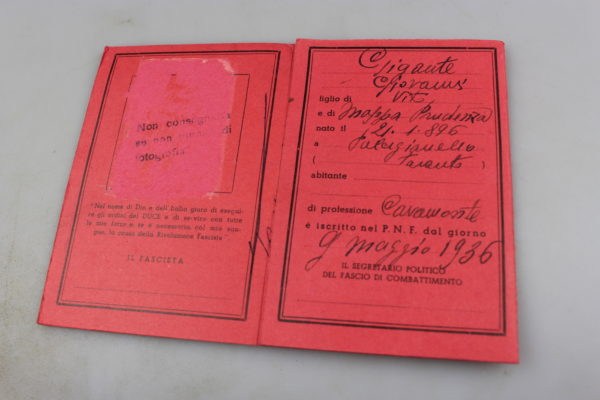 "Nel nome di Dio e dell'Italia giuro di eseguire
gli ordini del DUCE e di servire con tutte
le mie forze e se è necessario, col mio sangue,
la causa della Rivoluzione Fascista".
IL FASCISTA
Non consegnare
se non munita di
fotografia
Gigante
Giovanni
figlio di Vito
e di Mappa Prudenza
nato il 21.1.896
a Pulsgianello
( Taranto )
abitante
di professione Cavamonte
è iscritto nel P.N.F. dal giorno
9 Maggio 1936
IL SEGRETARIO POLITICO
DEL FASCIO DI COMBATTIMENTO